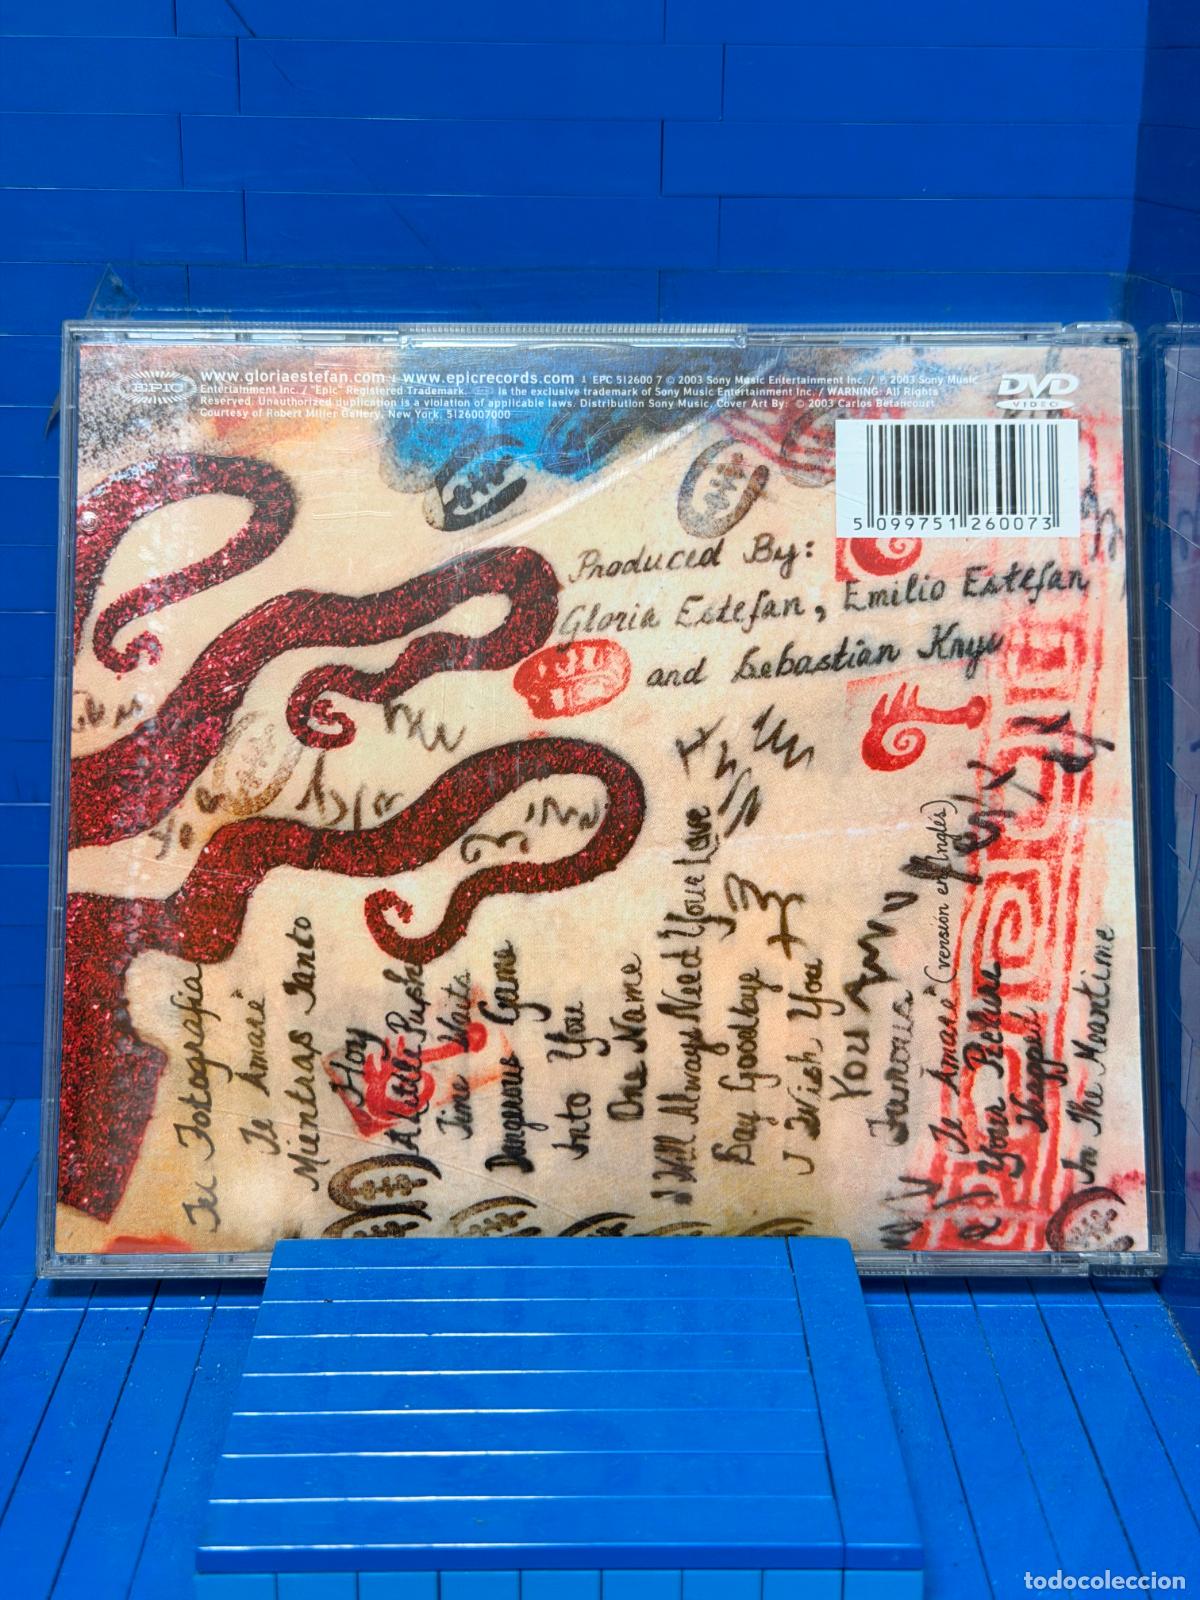 EPIC
www.gloriaestefan.com I www.epicrecords.com I EPC 512600 7 © 2003 Sony Music Entertainment Inc. / ℗ 2003 Sony Music
Entertainment Inc. / "Epic" Registered Trademark. is the exclusive trademark of Sony Music Entertainment Inc. / WARNING: All Rights
Reserved. Unauthorized duplication is a violation of applicable laws. Distribution Sony Music. Cover Art By: © 2003 Carlos Betancourt
Courtesy of Robert Miller Gallery, New York. 5126007000
DVD
VIDEO
5 099751 260073
Produced By:
Gloria Estefan, Emilio Estefan
and Sebastian Krys
Tu Fotografía
Te Amaré
Mientras Tanto
Hoy
A Little Push
Time Waits
Dangerous Game
Into You
One Name
I Will Always Need Your Love
Say Goodbye
I Wish You
You
Famous
"Te Amaré" (versión en Inglés)
Your Picture
Wrapped
In The Meantime
todocoleccion